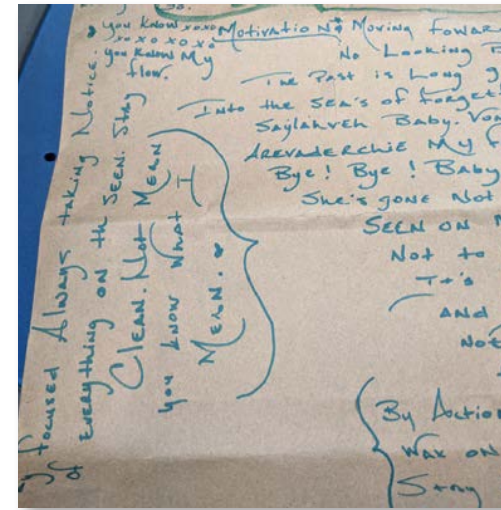 So.
you know xoxo
xoxo xo xo
you know My
flow.
Motivation Moving Foward
No Looking
The Past is Long
Into the SEA's of Forget
Saylahveh Baby. Von
Arevaderchie My f
Bye! Bye! Baby
She's gone Not
SEEN ON
Not to
It's
AND
Not
By Action
Wak on
Stay
focused Always taking Notice.
of Everything on th Seen. Stay
Clean. Not Mean
you know what I
Mean.